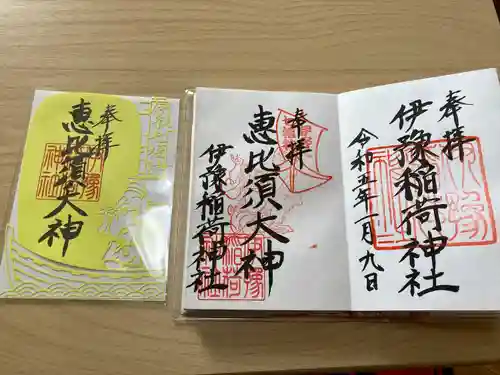 奉拝
恵比須大神
奉拝
恵比須大神
伊豫稲荷神社
奉拝
伊豫稲荷神社
令和五年一月九日